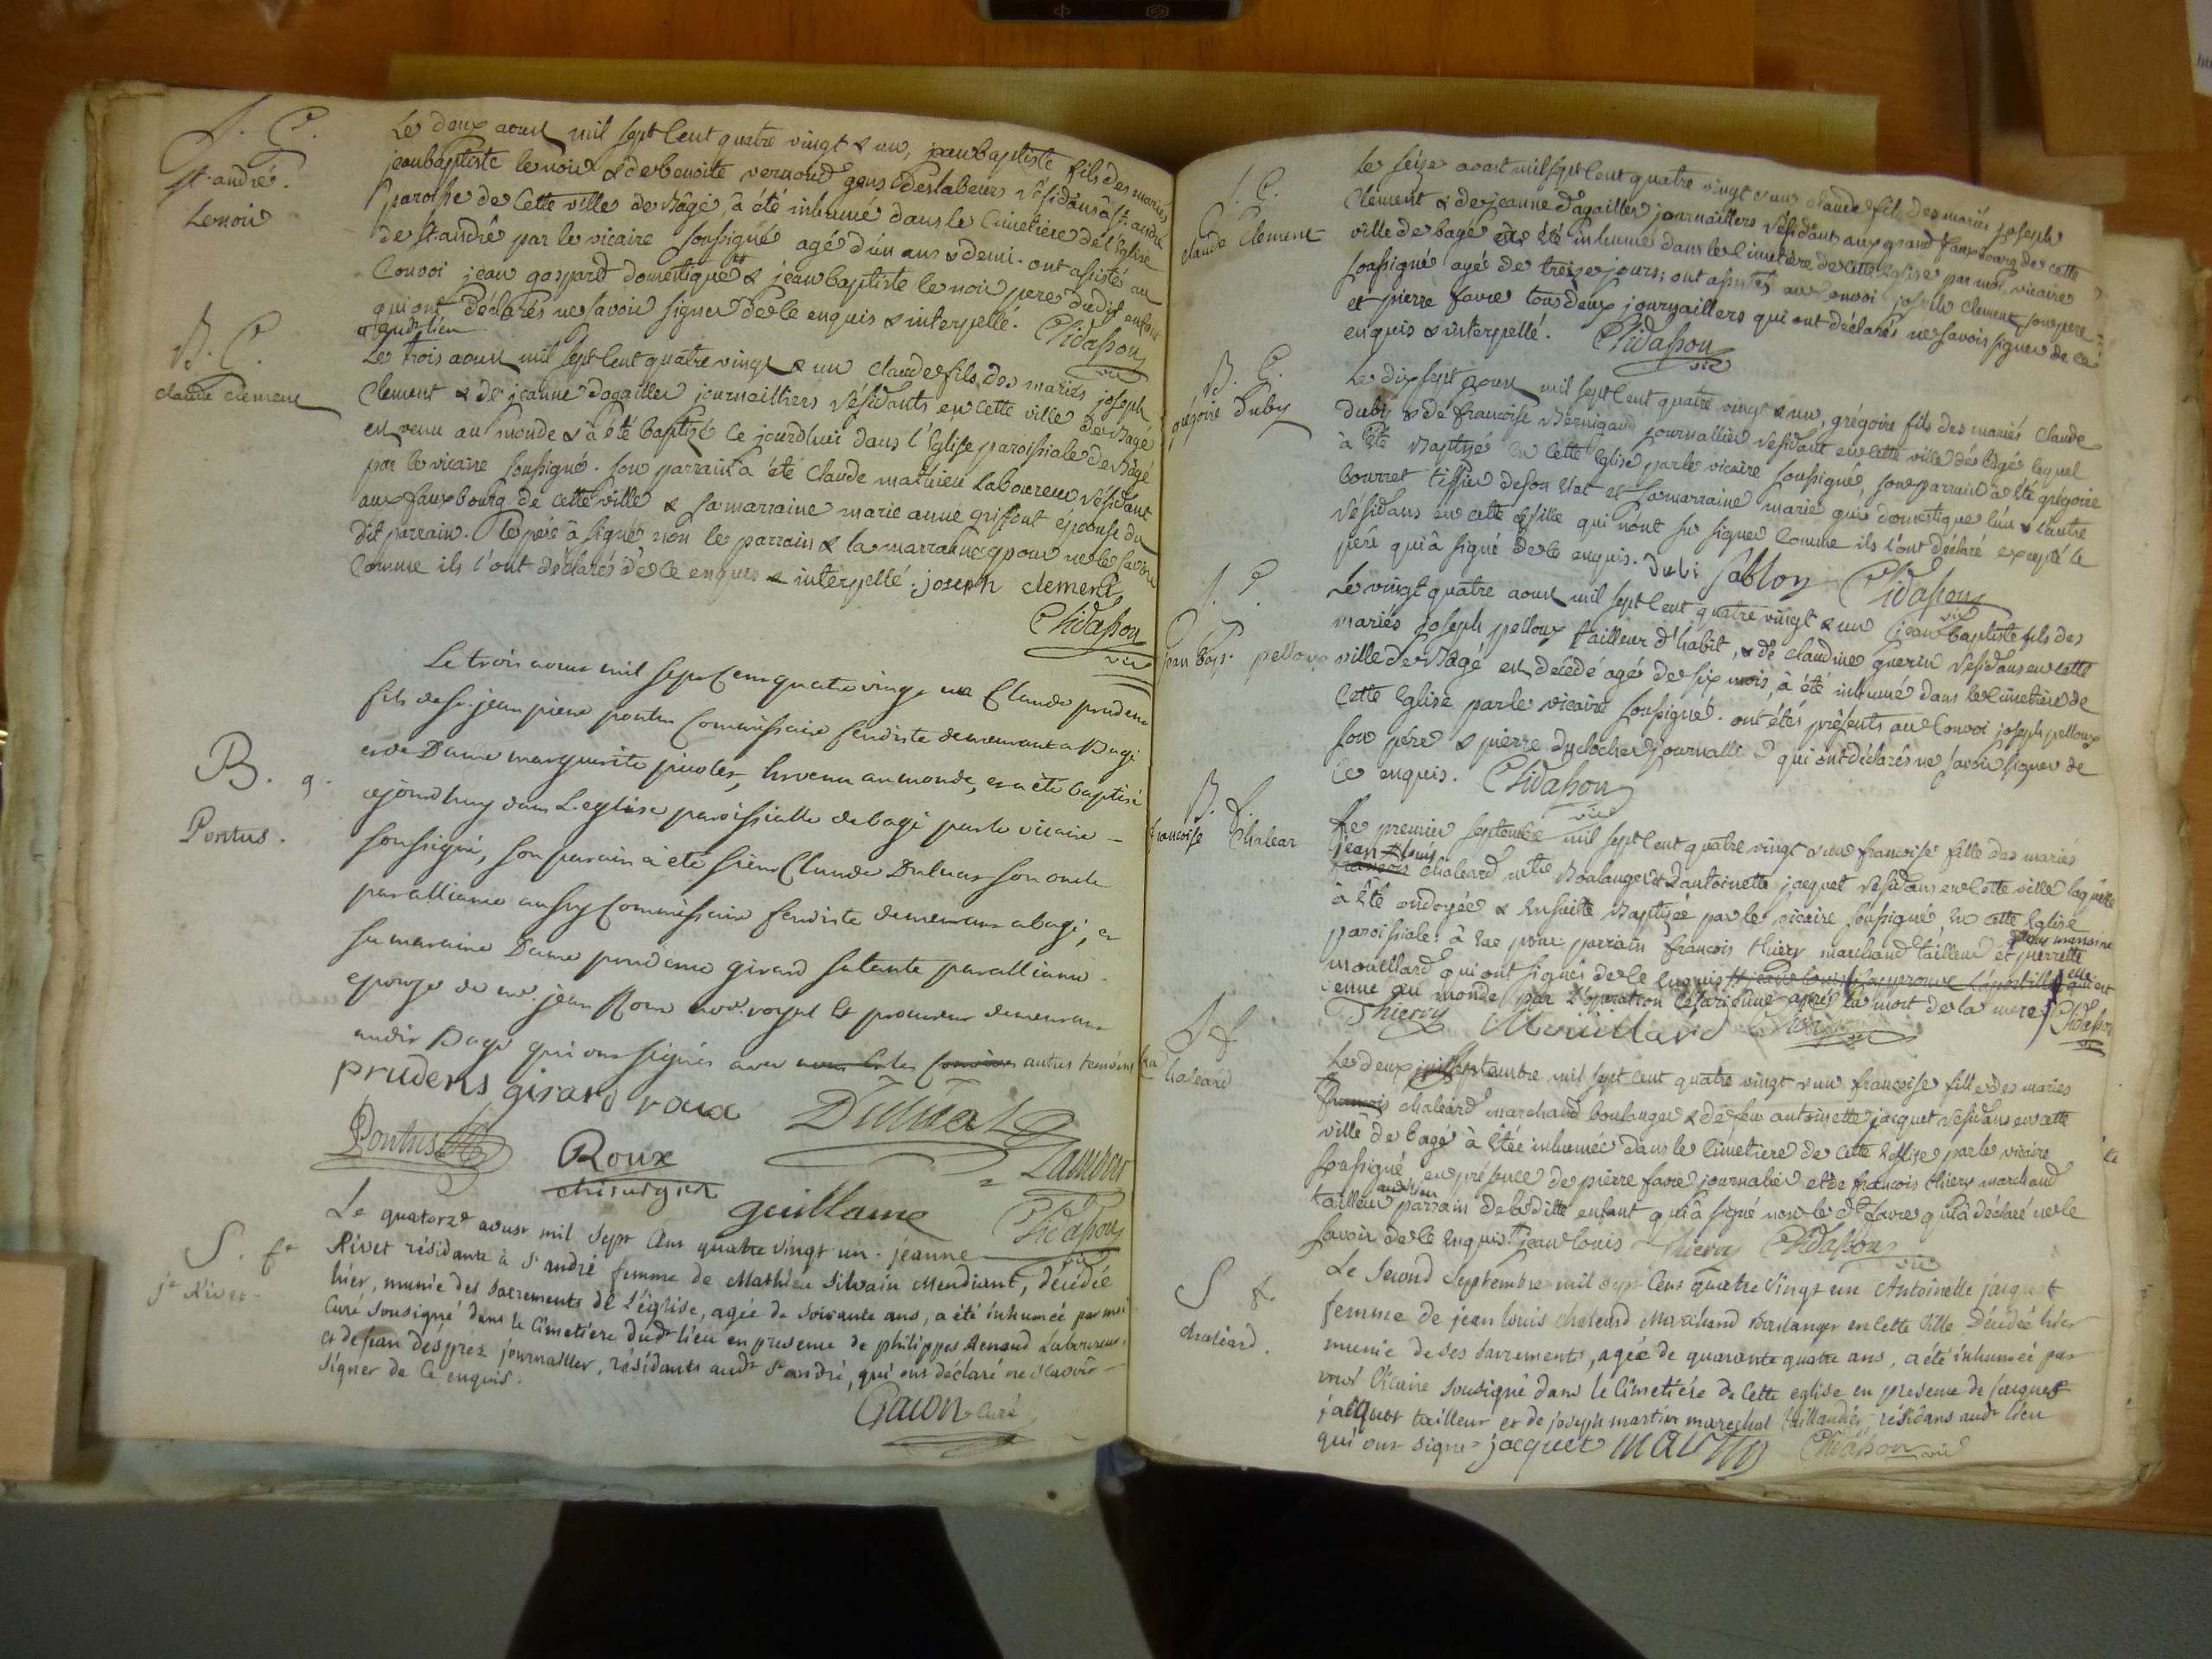 S. G.
st. andré.
Lenoir
Le deux aoust mil sept Cent quatre vingt & un, jean baptiste fils des mariés
jean baptiste lenoir & de benoite vernoud gens de labeurs résidans à st. andré
paroisse de Cette ville de Bâgé, à été inhumé dans le Cimetiere de l'Eglise
de st. andré par le vicaire soussigné agé d'un ans & demi. ont assistés au
Convoi jean gaspard domestique & jean baptiste lenoir pere dudit enfant
qui ont déclarés ne savoir signer de le enquis & interpellé. Chidasson
audt. lieu vic
B. G.
claude clement
Le trois aoust mil sept Cent quatre vingt & un claude fils des mariés joseph
Clement & de jeanne dagallier journailliers résidants en cette ville de Bagé
est venu au monde & à été baptisé ce jourdhui dans l'Eglise paroissiale de Bâgé
par le vicaire soussigné. son parrain à été Claude mathieu Laboureur résidant
aux fauxbourg de cette ville & sa marraine marie anne griffont épouse du
dit parrain. le pere à signé non le parrain & la marraine pour ne le savoir
Comme ils l'ont déclarés de ce enquis & interpellé. joseph clement
Chidasson
vic
B. g.
Pontus.
Le trois aoust mil sept Cent quatre vingt un Claude prudent
fils de sr. jean pierre pontus Commissaire feudiste demeurant a Bagé
et de Dame marguerite putot, est venu au monde, et a été baptisé
cejourdhuy dans L'eglise paroissialle de bagé par le vicaire
soussigné, son parain à eté sieur Claude Duluat son oncle
par alliance aussy Commissaire feudiste demeurant a bagé, et
sa maraine Dame prudence girard sa tante par alliance
epouse de me. jean Roux nore. royal Et procureur demeurant
audit Bagé qui ont signés avec les autres temoins
prudens girard roux Duluat
Pontus Roux Lambert
chirurgien guillaume Chidasson
vic
S. fe
je Rivet
Le quatorze aoust mil Sept Cent quatre vingt un. jeanne
Rivet résidante à St. andré femme de Mathieu Silvain Mendiant, décédée
hier, munie des sacrements de l'église, agée de soixante ans, a été inhumée par moi
Curé Sousigné dans le Cimetiere dudt. lieu en presence de philippes Renaud Laboureur,
et de jean després journallier, résidants audt. St. andré, qui ont déclaré ne scavoir
signer de Ce enquis.
Gacon Curé
S. G.
claude Clement
le seize aoust mil sept Cent quatre vingt & un claude fils des mariés joseph
Clement & de jeanne dagallier journailliers résidant aux grand fauxbourg de cette
ville de bagé à été inhumé dans le Cimetiere de cette Eglise par moi vicaire
soussigné agé de treize jours; ont assistés au Convoi joseph Clement son pere
et pierre favre tous deux journailliers qui ont déclarés ne savoir signer de ce
enquis & interpellé. Chidasson
vic
B. G.
grégoire Duby
Le dix sept aoust mil sept Cent quatre vingt & un, grégoire fils des mariés Claude
duby & de francoise Bernigaud journallier résidant en cette ville de bâgé lequel
à été Baptisé en cette Eglise par le vicaire soussigné, son parrain à été grégoire
bourret tissier de son état et sa marraine marie gui domestique l'un & l'autre
résidans en cette ville qui n'ont su signer Comme ils l'ont déclaré excepté le
père qui à signé de le enquis. Dubi Sabloy Chidasson
vic
S. G.
jean bapt. pelloux
Le vingt quatre aoust mil sept Cent quatre vingt & un jean baptiste fils des
mariés joseph pelloux tailleur d'habit, & de claudine guerin résidans en cette
ville de Bagé est décédé agé de six mois, à été inhumé dans le Cimetiere de
Cette Eglise par le vicaire soussigné. ont étés présents au Convoi joseph pelloux
son pére & pierre duclocher journallier qui ont déclarés ne savoir signer de
ce enquis. Chidasson
vic
B. f.
francoise Chalear
Le premier septembre mil sept Cent quatre vingt & un francoise fille des mariés
jean louis
francois chaleard mtre Boulanger & d'antoinette jacquet résidans en Cette ville laquelle
à été ondoyée & ensuite Baptisée par le vicaire soussigné en cette Eglise
paroissiale. à eue pour parrain francois thiery marchand tailleur et pour marraine pierrette
mouillard qui ont signés de le enquis
venue au monde par l'opération Césarienne après la mort de la mere Chidasson
Thiery Mouillard
S f
Chaleard
Le deux septembre mil sept cent quatre vingt & un francoise fille des mariés
francois chaleard marchand boulanger & de feu antoinette jacquet résidans en cette
ville de bagé à étée inhumée dans le Cimetiere de cette Eglise par le vicaire
soussigné en présence de pierre favre journalier et de francois thiery marchand
tailleur parrain de laditte enfant qui à signé non le dt favre qui à déclaré ne le
savoir de le enquis. jean louis thiery Chidasson
vic
S f.
chaléard.
Le second Septembre mil sept Cens quatre Vingt un Antoinette jacquet
femme de jean louis chaleard Marchand Boulanger en Cette Ville Décédée hier
munie de ses sacrements, agée de quarante quatre ans, a été inhumée par
moi Vicaire Sousigné dans le Cimetiére de Cette eglise en presence de jacques
jacquet tailleur et de joseph martin marechal taillandier résidans audt. lieu
qui ont signé jacquet Martin Chidasson vic